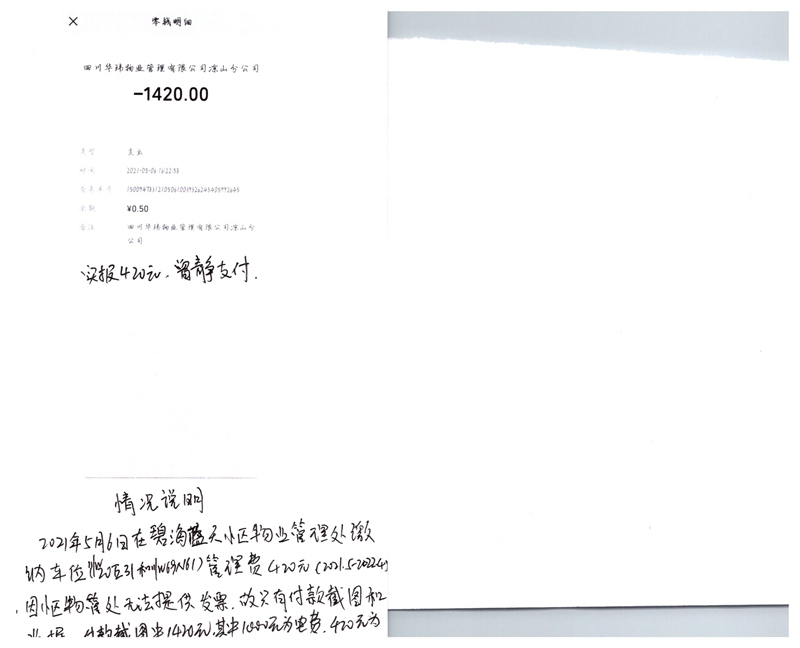 零钱明细
四川华玮物业管理有限公司凉山分公司
-1420.00
类型 支出
时间 2021-05-06 16:22:53
交易单号
余额 ¥0.50
备注 四川华玮物业管理有限公司凉山分
公司
实报420元，曾静支付.
情况说明
2021年5月6日在碧海蓝天小区物业管理处缴
纳车位 管理费420元(2021.5-2022.4)
，因小区物管处无法提供发票，故只有付款截图和
付款截图中1420元，其中1000元为电费，420元为